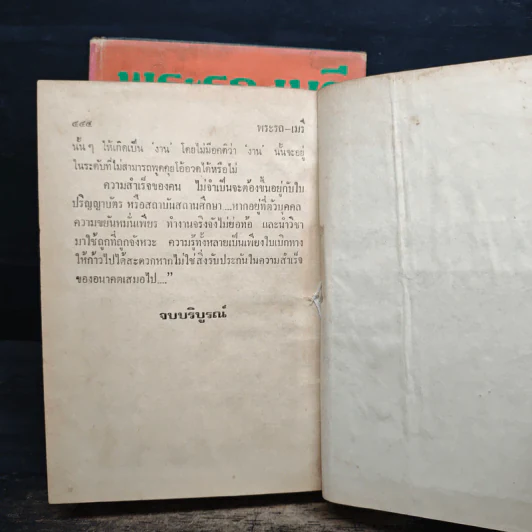 พระรถ-เมรี
๔๙๕ พระรถ–เมรี
นั้นๆ ให้เกิดเป็น ‘งาน’ โดยไม่มีอคติว่า ‘งาน’ นั้นจะอยู่
ในระดับที่ไม่สามารถพูดคุยโอ้อวดได้หรือไม่
ความสำเร็จของคน ไม่จำเป็นจะต้องขึ้นอยู่กับใบ
ปริญญาบัตร หรือสถาบันสถานศึกษา....หากอยู่ที่ตัวบุคคล
ความขยันหมั่นเพียร ทำงานจริงจังไม่ย่อท้อ และนำวิชา
มาใช้ถูกที่ถูกจังหวะ ความรู้ทั้งหลายเป็นเพียงใบเบิกทาง
ให้ก้าวไปได้สะดวกหากไม่ใช่สิ่งรับประกันในความสำเร็จ
ของอนาคตเสมอไป....”
จบบริบูรณ์